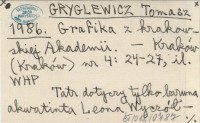 GRYGLEWICZ Tomasz
1986. Grafika z krakow-
skiej Akademii. — Kraków
(Kraków) nr 4: 24-27, il.
WHP
Tatr dotyczy tylko barwna
akwatinta Leona Wyczół-